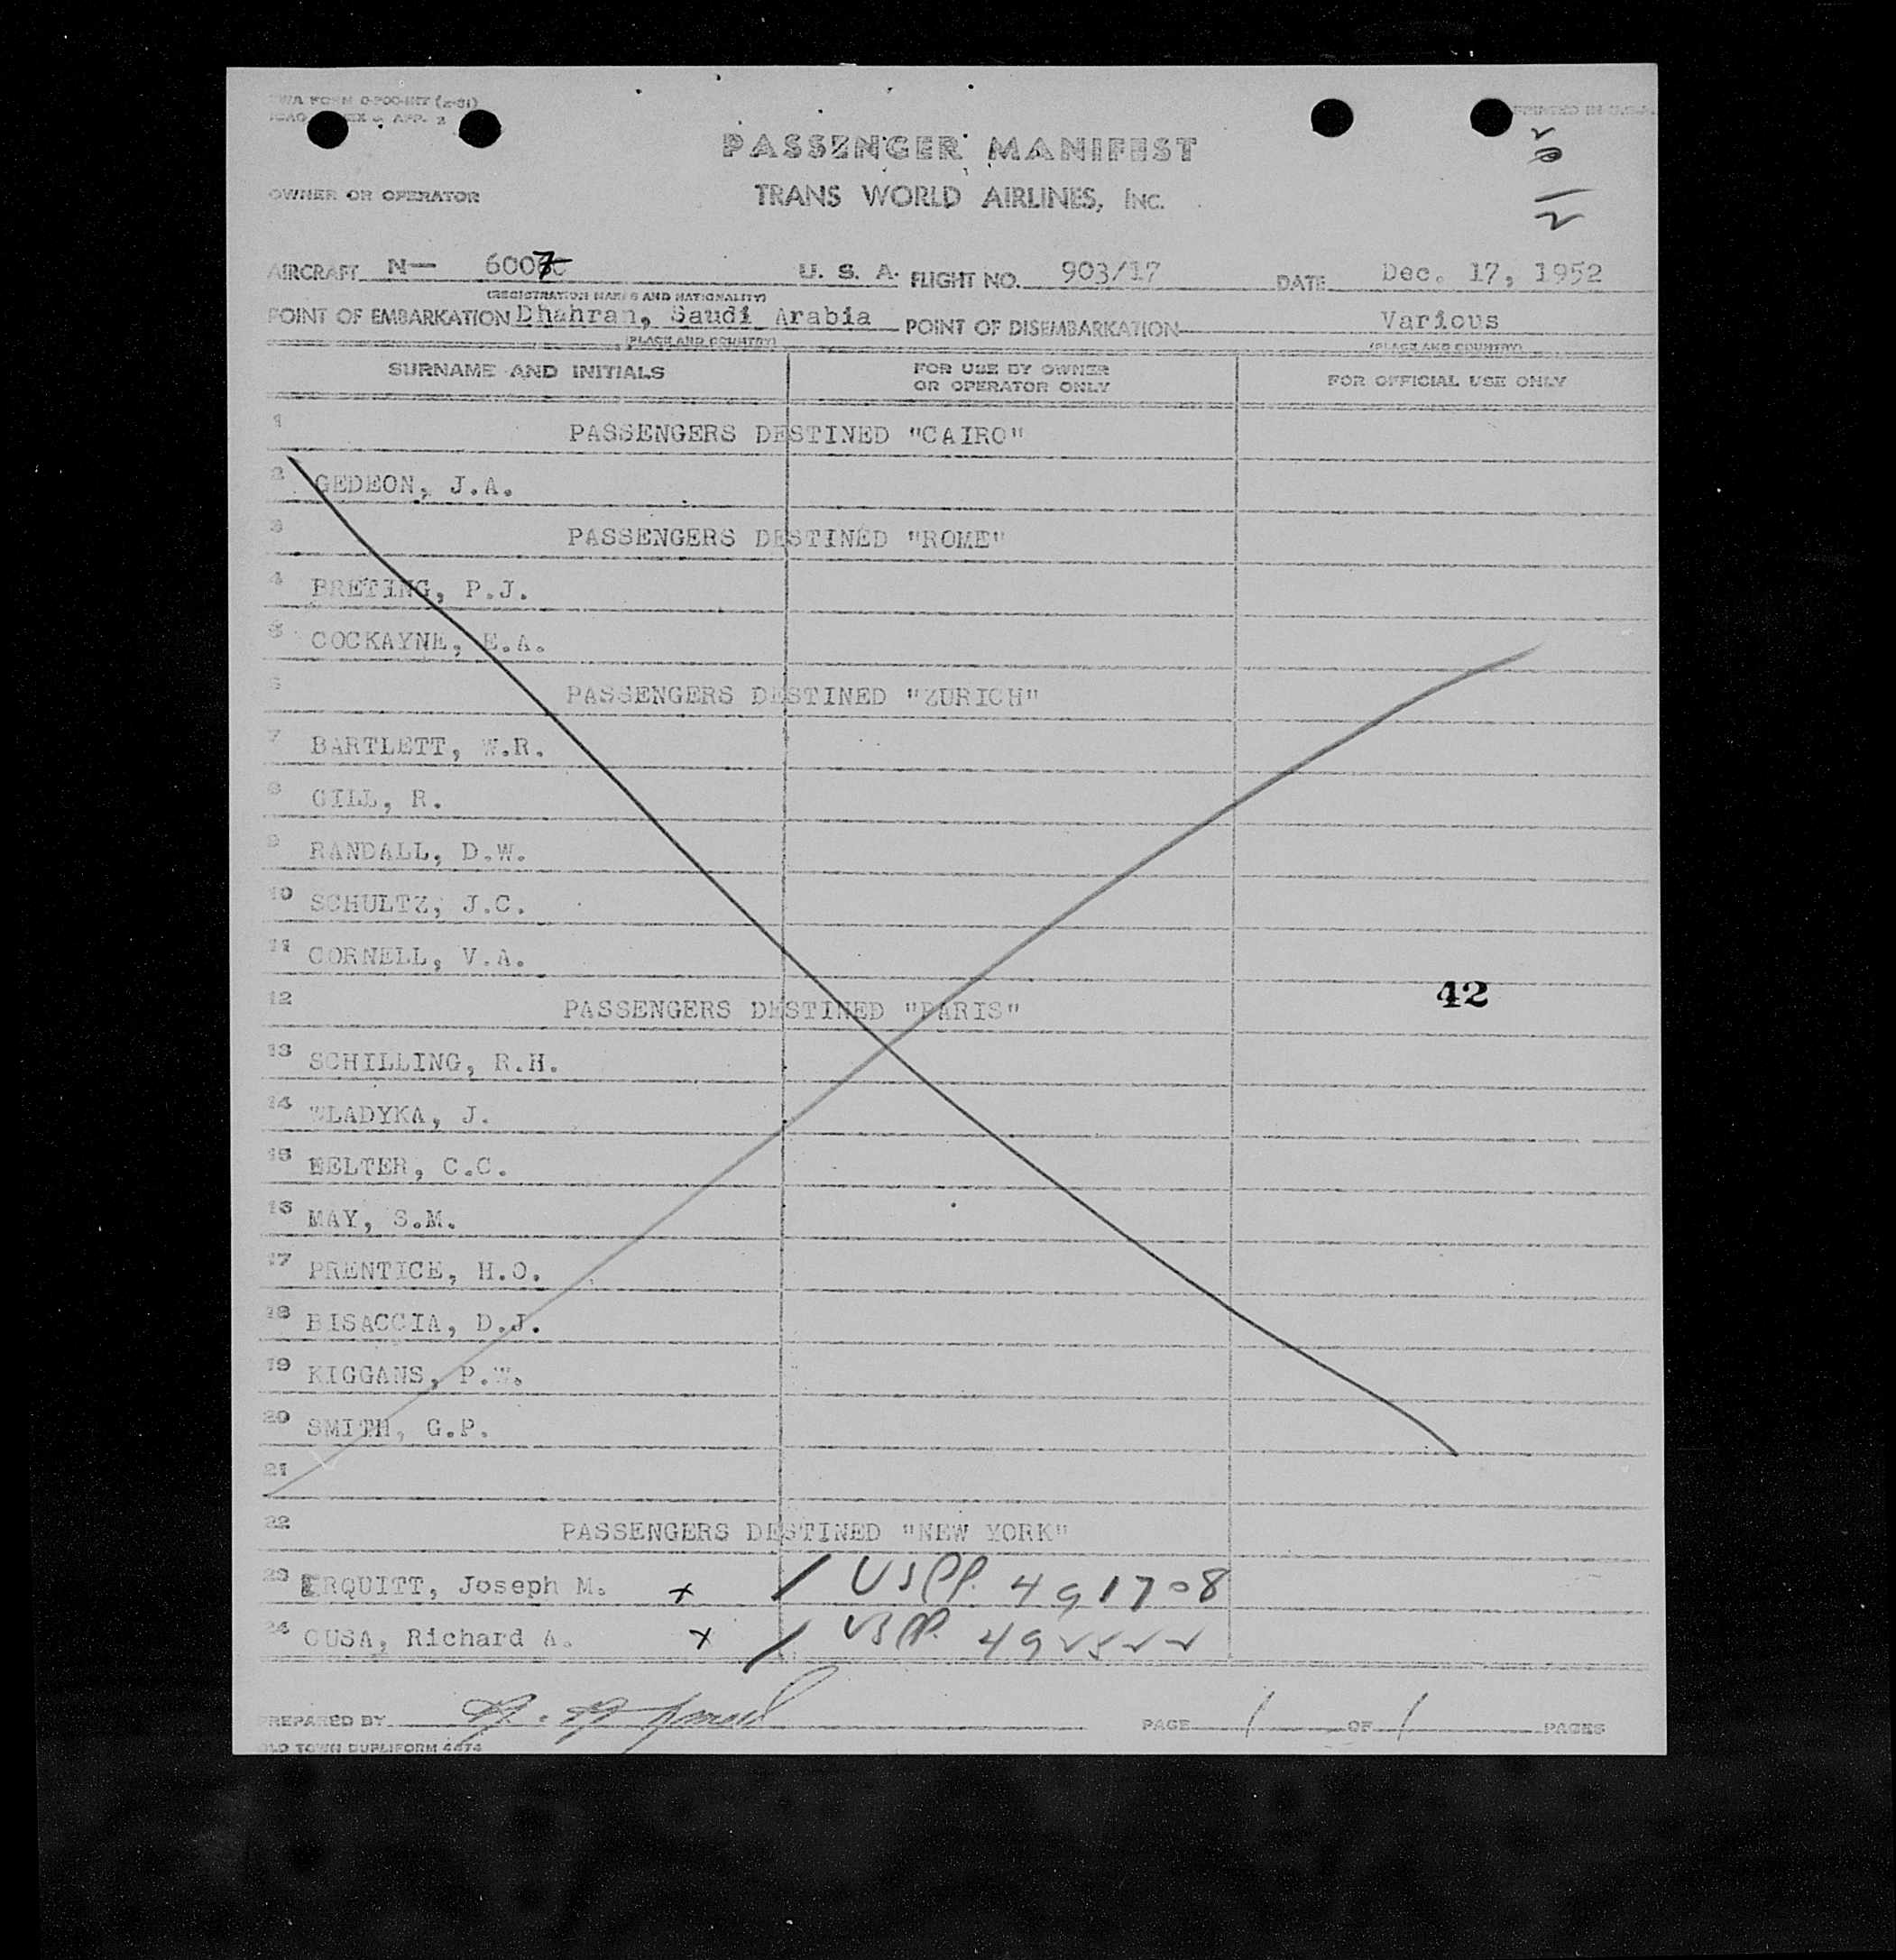 TWA FORM
PRINTED IN U.S.A.
PASSENGER MANIFEST
OWNER OR OPERATOR TRANS WORLD AIRLINES, INC.
AIRCRAFT N— 6007 U. S. A. FLIGHT NO. 903/17 DATE Dec. 17, 1952
(REGISTRATION MARKS AND NATIONALITY)
POINT OF EMBARKATION Dhahran, Saudi Arabia POINT OF DISEMBARKATION Various
(PLACE AND COUNTRY) (PLACE AND COUNTRY)
SURNAME AND INITIALS FOR USE BY OWNER OR OPERATOR ONLY FOR OFFICIAL USE ONLY
1 PASSENGERS DESTINED "CAIRO"
2 GEDEON, J.A.
3 PASSENGERS DESTINED "ROME"
4 BRETING, P.J.
5 COCKAYNE, E.A.
6 PASSENGERS DESTINED "ZURICH"
7 BARTLETT, W.R.
8 GILL, R.
9 RANDALL, D.W.
10 SCHULTZ, J.C.
11 CORNELL, V.A.
12 PASSENGERS DESTINED "PARIS" 42
13 SCHILLING, R.H.
14 WLADYKA, J.
15 C.C.
16 MAY, S.M.
17 PRENTICE, H.O.
18 BISACCIA, D.J.
19 KIGGANS, P.W.
20 SMITH, G.P.
21
22 PASSENGERS DESTINED "NEW YORK"
23 Joseph M. x / USPP. 491708
24 CUSA, Richard A. x / USPP.
PREPARED BY PAGE 1 OF 1 PAGES
OLD TOWN DUPLIFORM 4474